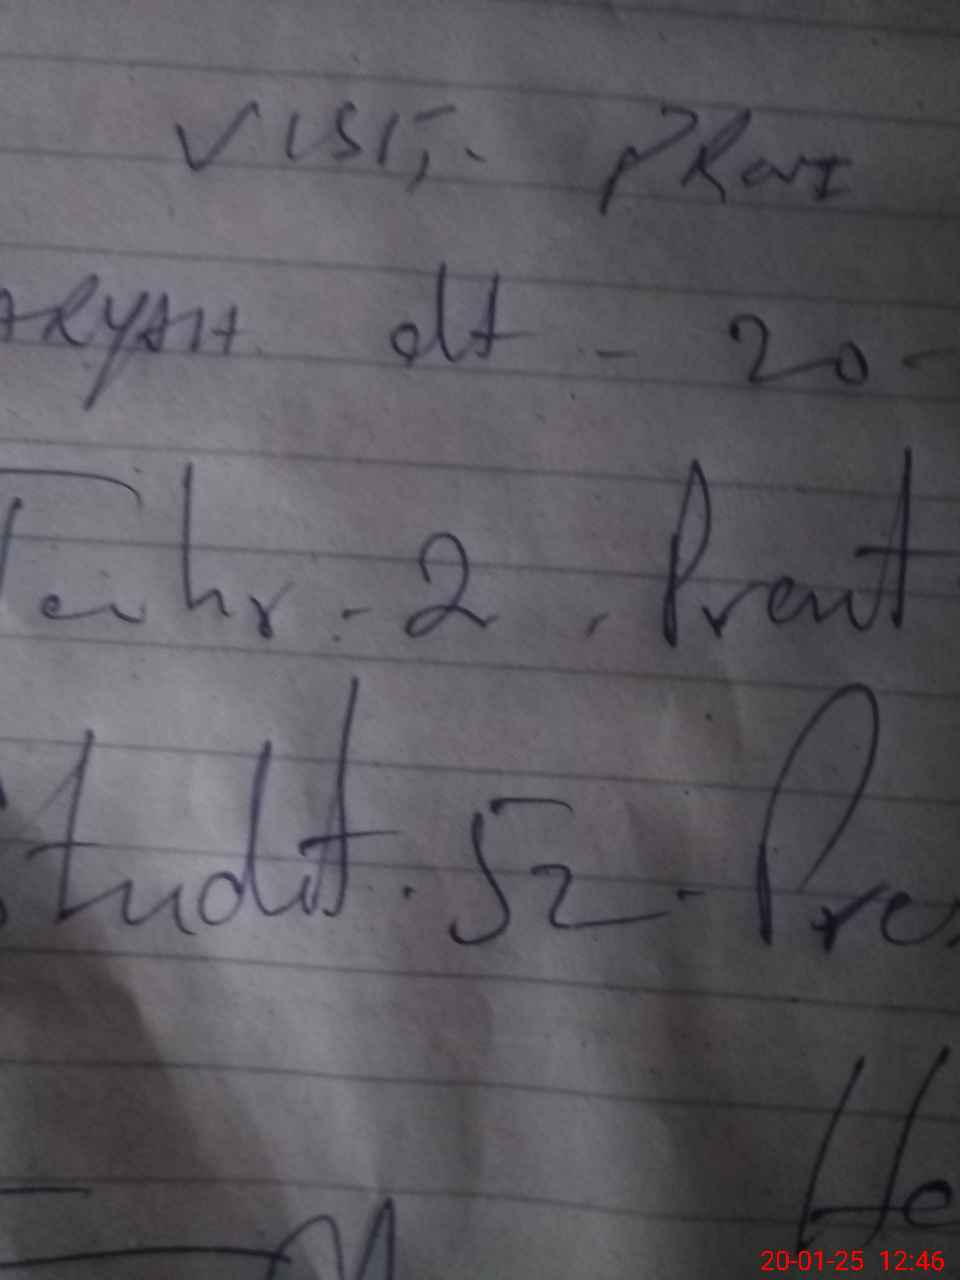 VISIT. PRavI
ARYAH dt - 20 -
Teahr - 2. Present
Studt. 52 - Pres
He
20-01-25 12:46